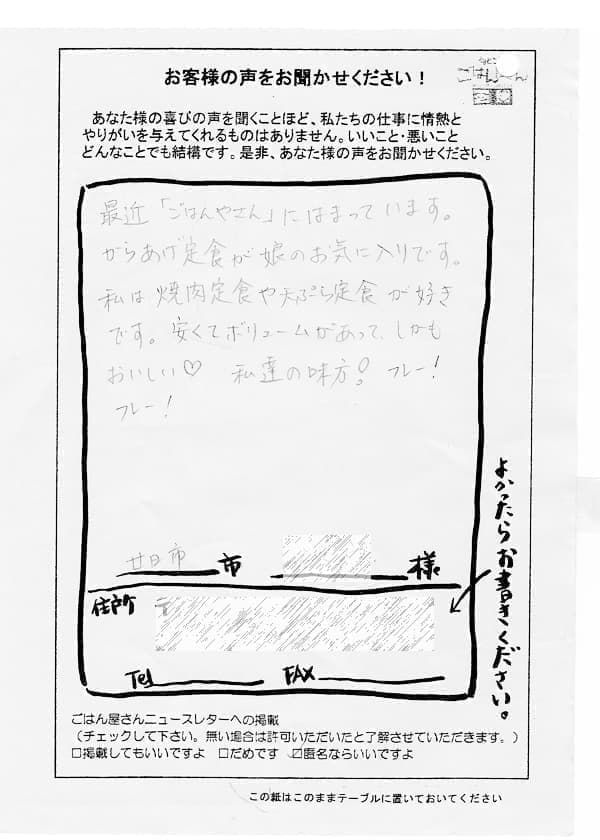 お客様の声をお聞かせください！
ごはんや〜ん
あなた様の喜びの声を聞くことほど、私たちの仕事に情熱と
やりがいを与えてくれるものはありません。いいこと・悪いこと
どんなことでも結構です。是非、あなた様の声をお聞かせください。
最近「ごはんやさん」にはまっています。
からあげ定食が娘のお気に入りです。
私は焼肉定食や天ぷら定食が好き
です。安くてボリュームがあって、しかも
おいしい♡ 私達の味方！ フレー！
フレー！
廿日市 市 様
住所
Tel FAX
よかったらお書きください。
ごはん屋さんニュースレターへの掲載
（チェックして下さい。無い場合は許可いただいたと了解させていただきます。）
□掲載してもいいですよ □だめです ☑匿名ならいいですよ
この紙はこのままテーブルに置いておいてください